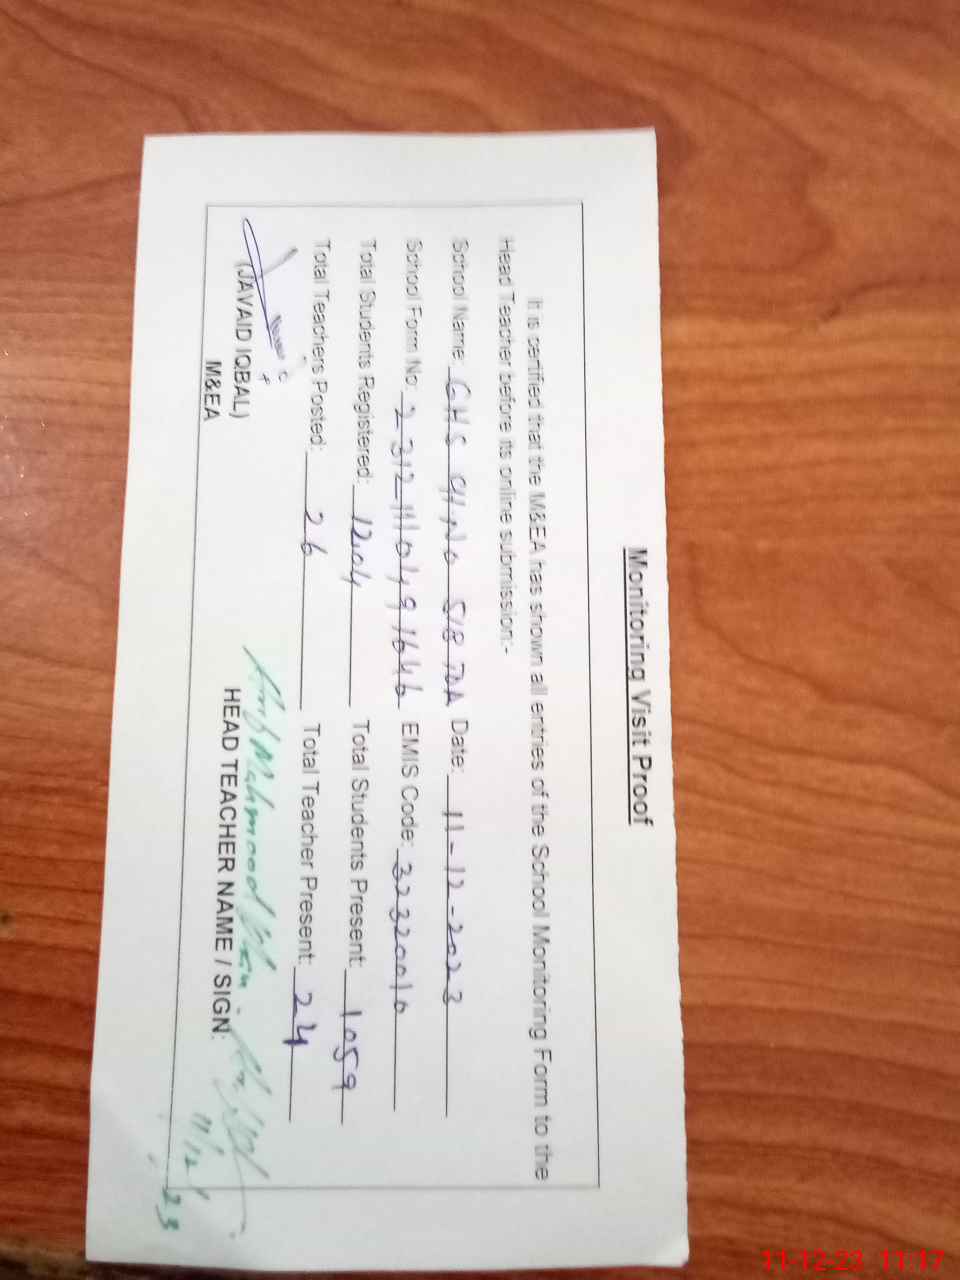 Monitoring Visit Proof
It is certified that the M&EA has shown all entries of the School Monitoring Form to the
Head Teacher before its online submission:-
School Name: GHS CH NO 518 TDA Date: 11-12-2023
School Form No: 2312111049 1646 EMIS Code: 32320010
Total Students Registered: 1204 Total Students Present: 1059
Total Teachers Posted: 26 Total Teacher Present: 24
Mahmood
(JAVAID IQBAL) HEAD TEACHER NAME / SIGN:
M&EA
11-12-23 11:17